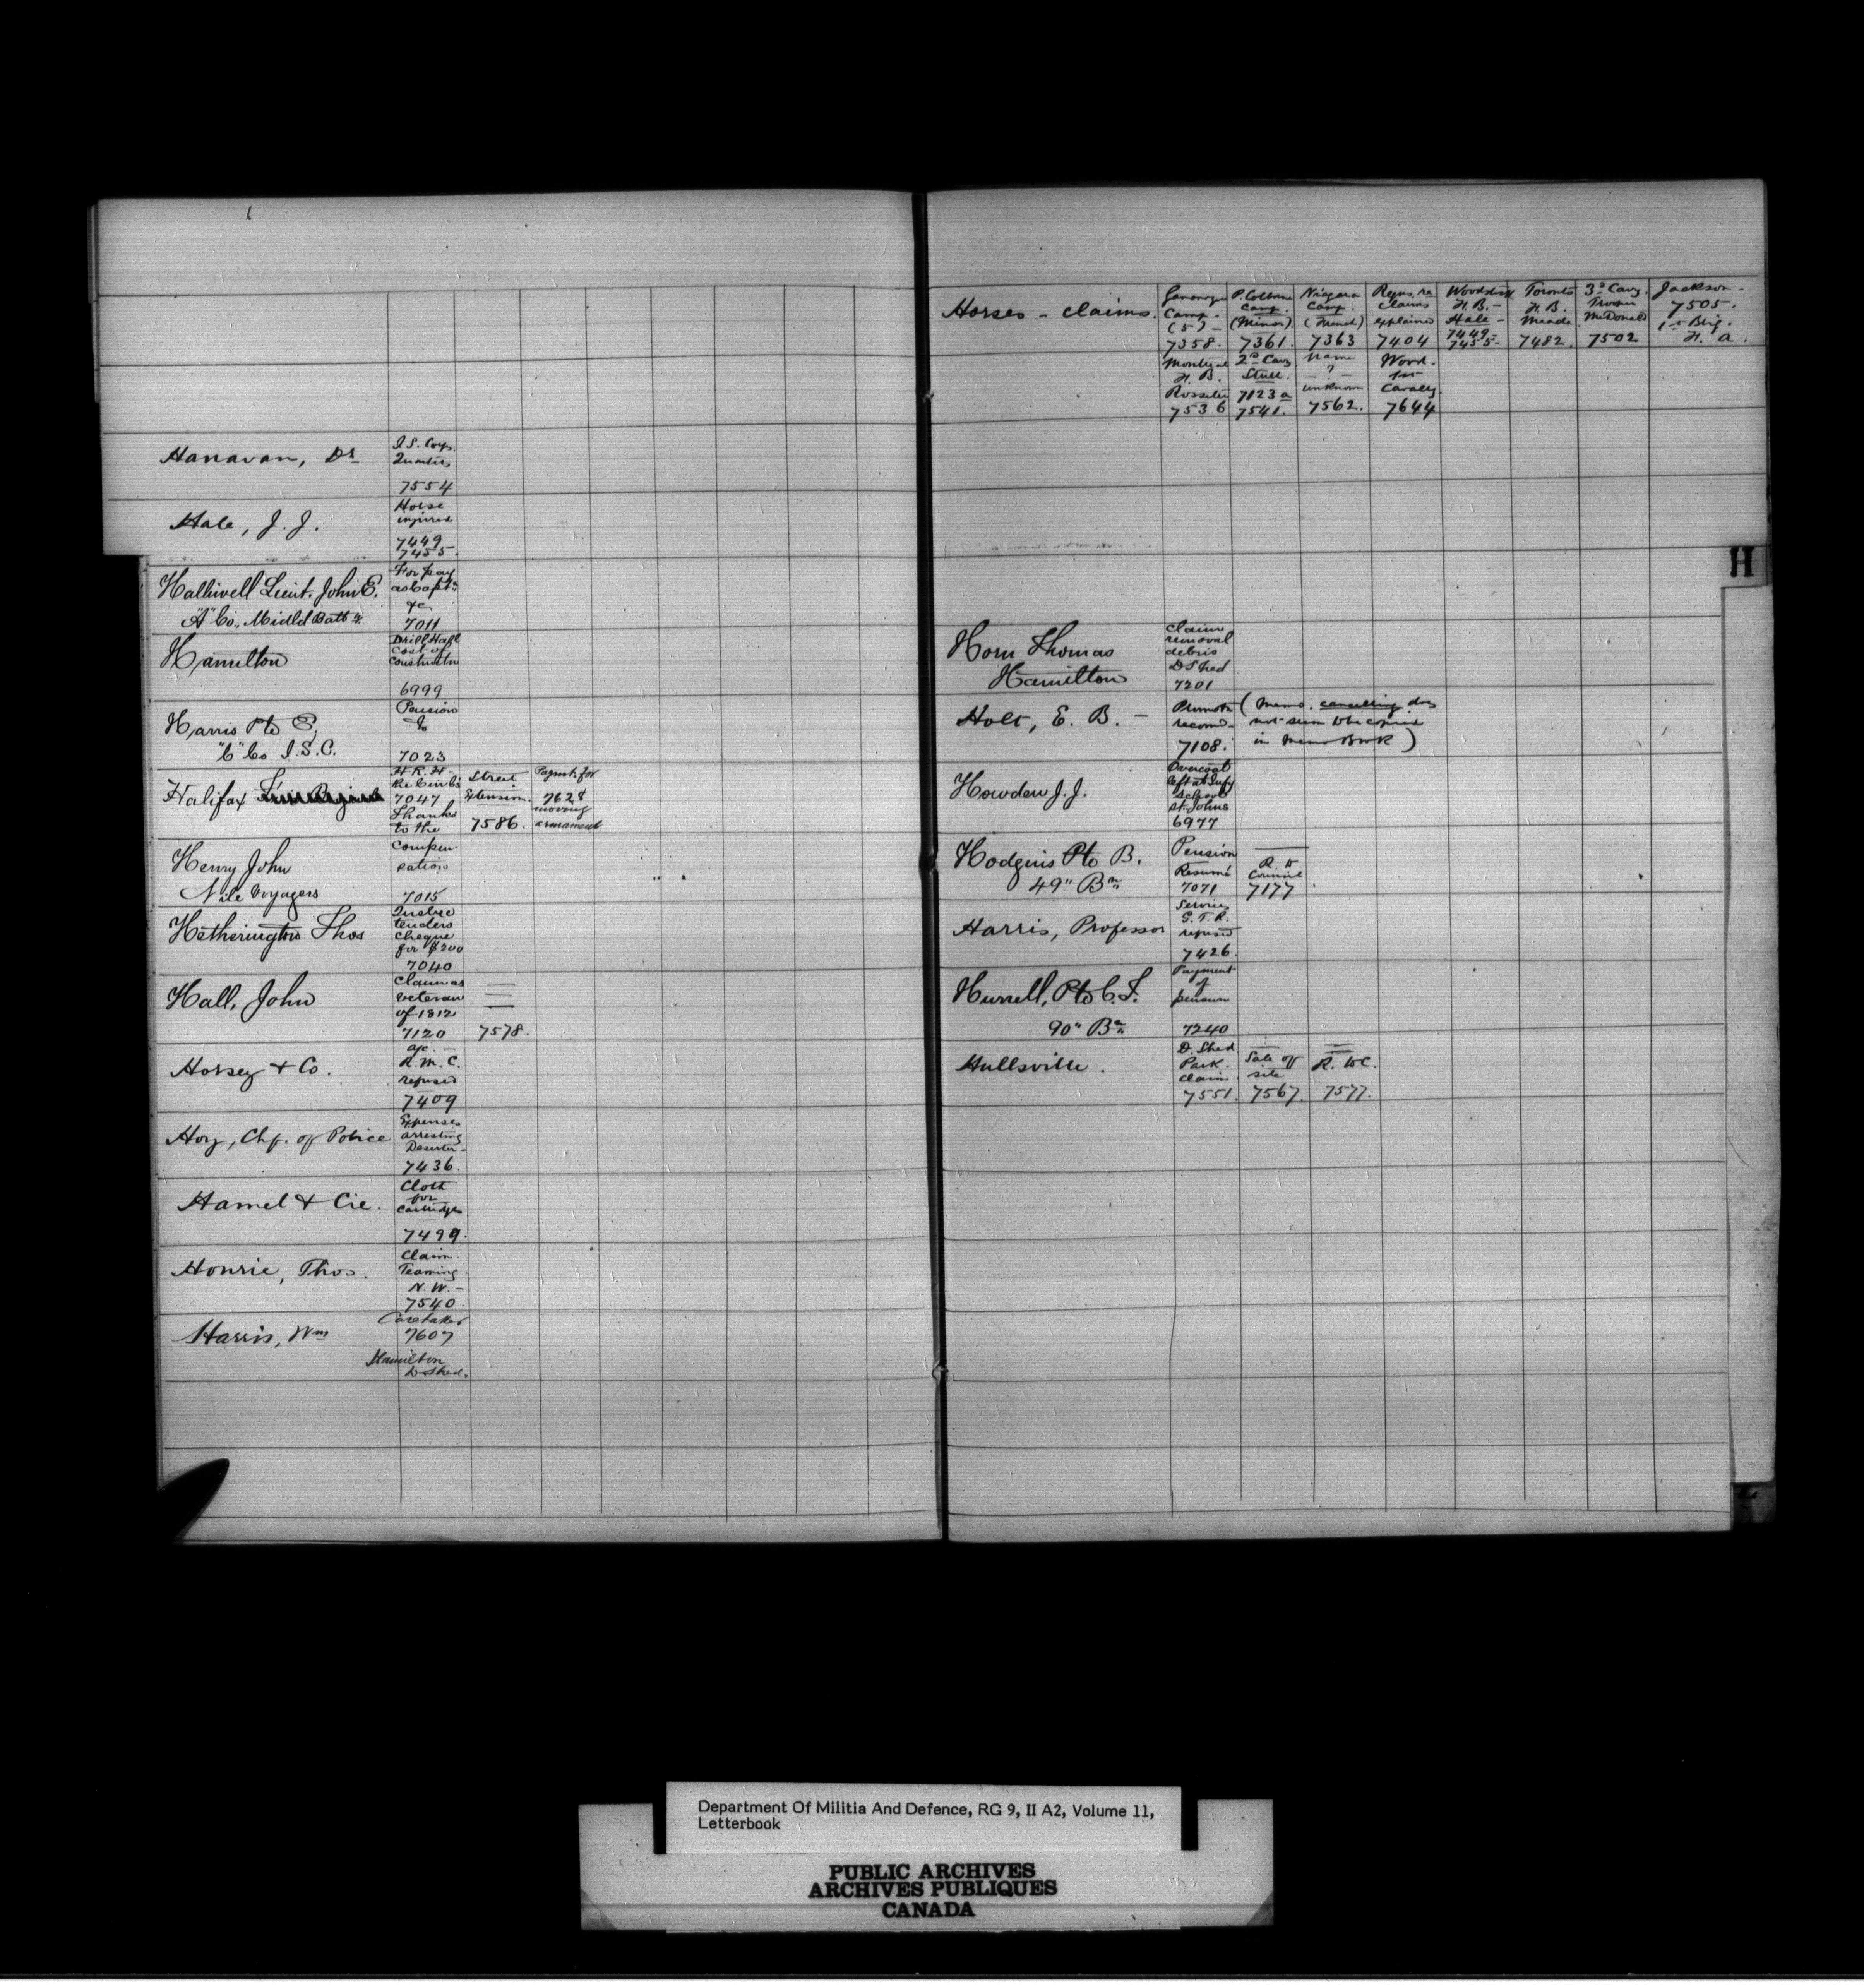 Hanavan, Dr
I. S. Corps.
Quarters
7554
Hale, J. J.
Horse
injured
7449
7455
Halliwell Lieut. John E.
"A" Co., Midld Battn
For pay
as Captn
&c
7011
Hamilton
Drill Hall
cost of
construction
6999
Harris Pte E.
"C" Co I.S.C.
Pension
to
7023
Halifax
H. R. H.
7047
Thanks
to the
Street
Extension.
7586.
Paymt. for
7628
moving
armament
Henry John
Nile Voyagers
Compen-
sation
7015
Hetherington Thos
Quebec
tenders
cheque
for $200
7040
Hall, John
Claim as
veteran
of 1812
7120
7578.
Horsey & Co.
a/c. -
R. M. C.
refused
7409
Hoy, Chf. of Police
Expenses
arresting
Deserter -
7436.
Hamel & Cie.
Cloth
for
Cartridges
7499.
Honrie, Thos.
Claim
Teaming
N. W. -
7540.
Harris, Wm
Caretaker
7607
Hamilton
D. Shed.
Horses - claims.
Gananoque
Camp -
(5) -
7358.
P. Colborne
Camp.
(Minor)
7361.
Niagara
Camp.
(French)
7363
Regns. re
claims
explained
7404
Woodstock
H. B. -
Hale -
7449 -
7455 -
Toronto
H. B.
Meade.
7482.
3d Cavy.
Troop
McDonald
7502
Jackson -
7505.
1st Brig.
H. a.
Montreal
H. B.
7536
2nd Cavy
Stull.
7123 a
7541.
Name
- ? -
unknown
7562.
Wood -
1st
Cavalry
7644
H
Horn Thomas
Hamilton
Claim
removal
debris
D Shed
7201
Holt, E. B. -
Promotn
recomd -
7108.
(Memo. cancelling does
not seem to be copied
in Memo Book)
Howden J. J.
Overcoat
left at Infy
School
St. Johns
6977
Hodgins Pte B.
49" Bn
Pension
Resumé
7071
R. to
Council
7177
Harris, Professor
Services
G. T. R.
refused
7426.
Hurrell, Pte C. T.
90" Bn
Payment
of
pension
7240
Hullsville.
D. Shed.
Park.
claim.
7551.
Sale of
site
7567.
R. to C.
7577.
Department Of Militia And Defence, RG 9, II A2, Volume 11,
Letterbook
PUBLIC ARCHIVES
ARCHIVES PUBLIQUES
CANADA